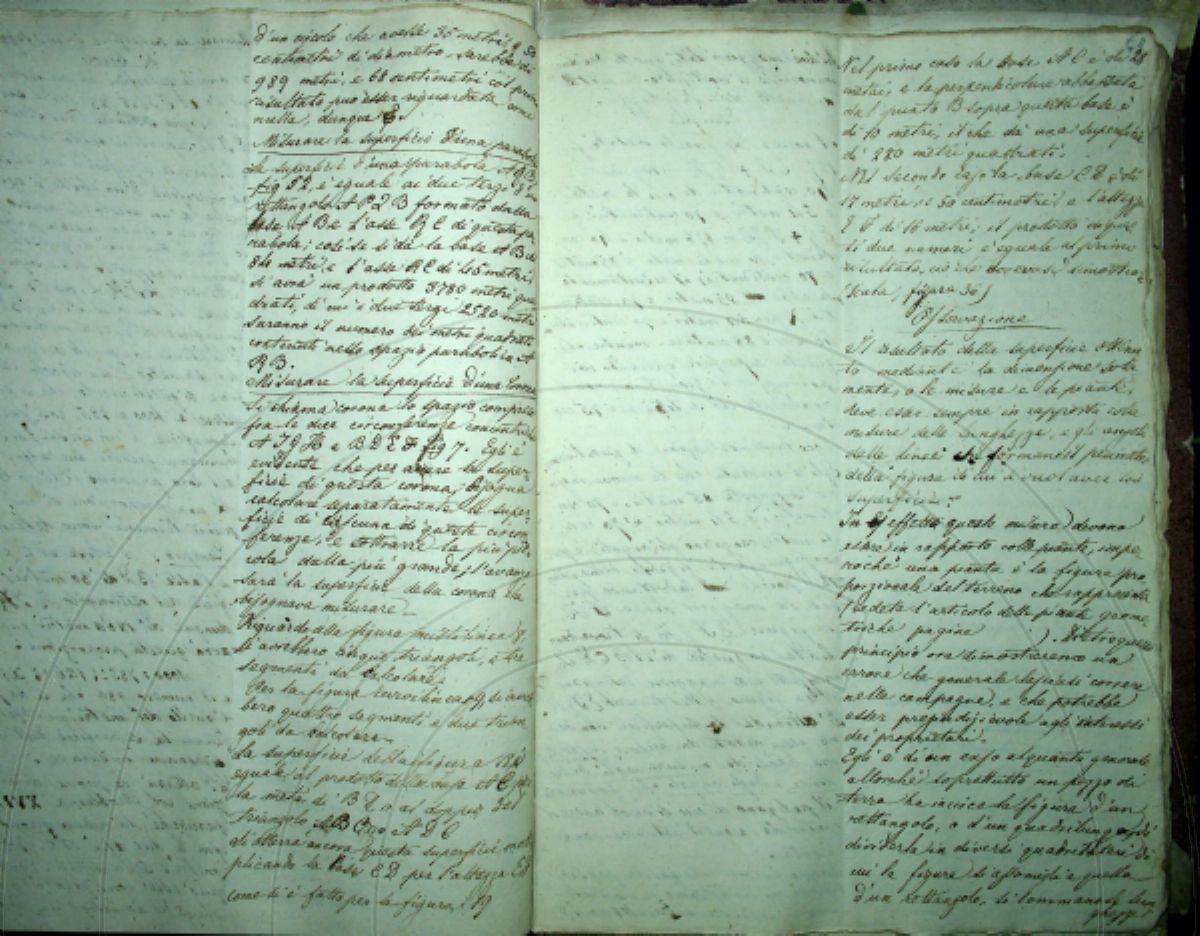 d'un circolo che avesse 35 metri, e 50
centimetri di diametro sarebbe di
989 metri, e 68 centimetri
risultato può esser riguardata come
nulla, dunque &.
Misurare la superficie d'una parabola
La superficie d'una parabola A R B
fig 52, è eguale ai due terzi del
rettangolo A P Q B formato dalla
base A B e l'asse R C di questa pa
rabola; così se si dà la base A B di
84 metri, e l'asse R C di 45 metri,
si avrà un prodotto 3780 metri qua
drati, di cui i due terzi 2520 metri
saranno il numero dei metri quadrati
contenuti nello spazio parabolico A
R B.
Misurare la superficie d'una Corona
Si chiama corona lo spazio compreso
fra le due circonferenze concentriche
A I G H e B D E F fig 7. Egli è
evidente che per avere la super-
ficie di questa corona, bisogna
calcolare separatamente le super-
ficie di ciascuna di queste circon
ferenze, e sottrarre la più pic-
cola dalla più grande; l'avanzo
sarà la superficie della corona che
bisognava misurare
Riguardo alla figura mistilinea 8.
si avrebbero cinque triangoli, e tre
segmenti da calcolare.
Per la figura curvilinea 9, si avreb
bero quattro segmenti e due trian
goli da calcolare.
La superficie della figura
eguale al prodotto della base A C per
la metà di B E o al doppio del
triangolo A B C o A D C
Si otterrà ancora questa superficie molti
plicando la base C D per l'altezza E F
come si è fatto per la figura 19
Nel primo caso la base A C è di 28
metri, e la perpendicolare abbassata
dal punto B sopra questa base è
di 10 metri, il che dà una superficie
di 280 metri quadrati.
Nel secondo caso la base C D è di
17 metri, e 50 centimetri e l'altezza
E F di 16 metri; il prodotto
di due numeri è eguale al primo
risultato, ciò che dovevasi dimostrare
(Scala, figura 30)
Osservazione
Il risultato della superficie ottenu
to mediante la dimensione sola
mente, o le misure e le piante,
deve esser sempre in rapporto colle
misure delle lunghezze, e gli angoli
delle linee che formano il perimetro
della figura di cui si vuol avere la
superficie.
In effetto queste misure devono
essere in rapporto colle piante, impe
rocchè una pianta è la figura pro
porzionale del terreno che rappresenta
(vedete l'articolo delle piante geome
triche pagina ). Dietro questo
principio ora dimostreremo un
errore che generale lascia si correre
nelle campagne, e che potrebbe
esser pregiudizievole agli interessi
dei proprietari.
Egli è di un caso alquanto generale
allorchè soprattutto un pezzo di
terra ha invece la figura d'un
rettangolo, o d'un quadrilungo
dividerla in diversi quadrilateri di
cui la figura si assomiglia a quella
d'un rettangolo, si sommano le lun
ghezze